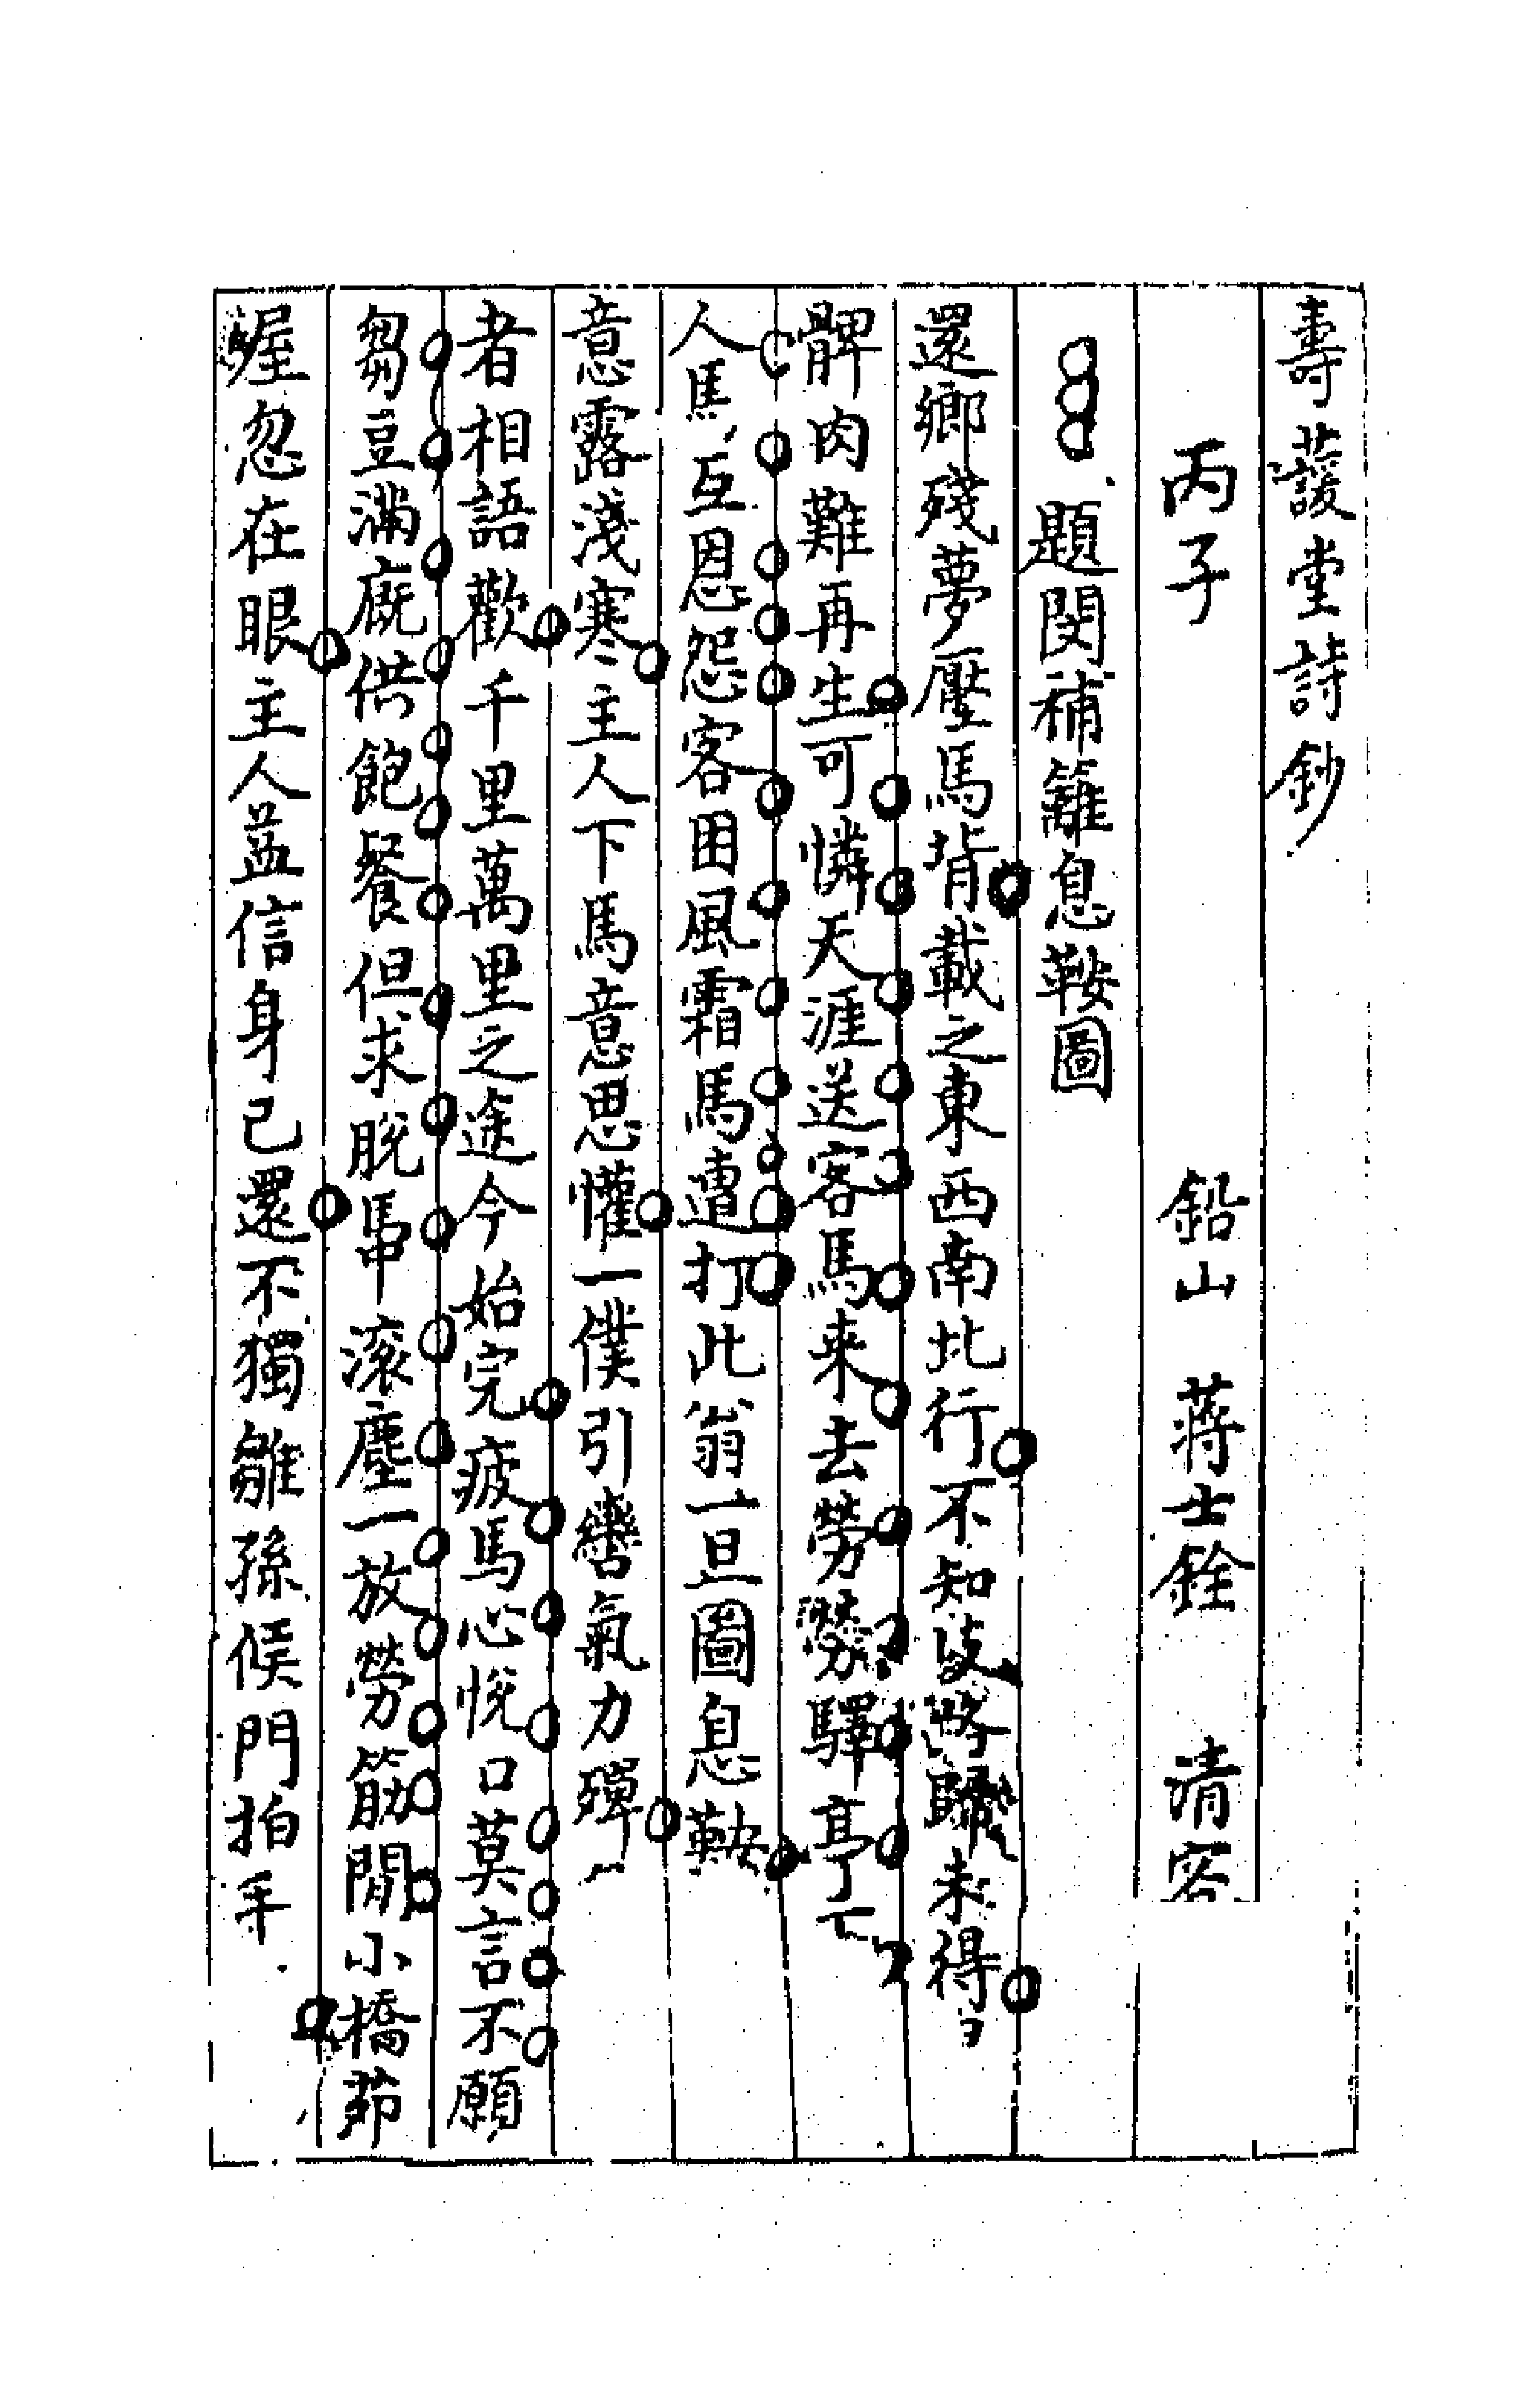 壽萱堂詩鈔
丙子 鉛山 蔣士銓 清容
題閔補籬息鞍圖
還鄉殘夢壓馬背載之東西南北行不知歧路歸未得
髀肉難再生可憐天涯送客馬來去勞勞驛亭下
人馬互恩怨客困風霜馬遭打此翁一旦圖息鞍
意露淺寒主人下馬意思懽一僕引轡氣力殫
者相語歡千里萬里之途今始完疲馬心悅口莫言不願
芻豆滿廐供飽餐但求脫馽滾塵一放勞筋閒小橋茆
屋忽在眼主人益信身己還不獨雛孫候門拍手